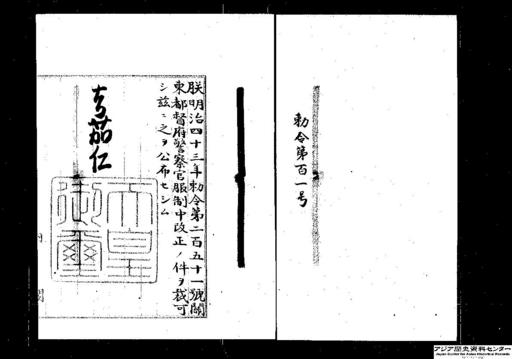 勅令第百一号
朕明治四十三年勅令第二百五十一號關
東都督府警察官服制中改正ノ件ヲ裁可
シ茲ニ之ヲ公布セシム
嘉仁
天皇
御璽
アジア歴史資料センター
Japan Center for Asian Historical Records